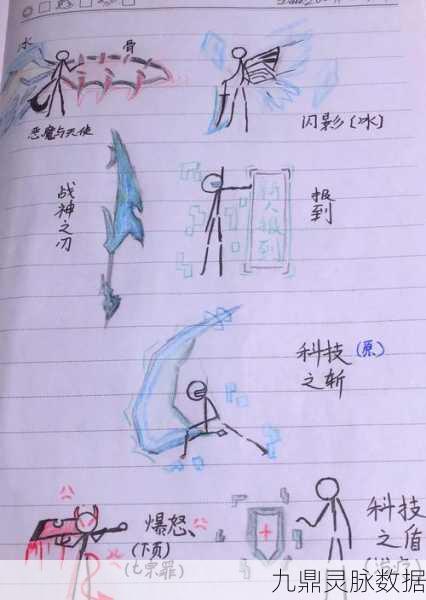 冰
骨
恶魔与天使
闪影(冰)
战神之刃
新人报到
报到
科技(原)
之斩
爆怒、
(下页)
(七宗罪)
科技
之盾
(治疗)
九鼎灵脉数据